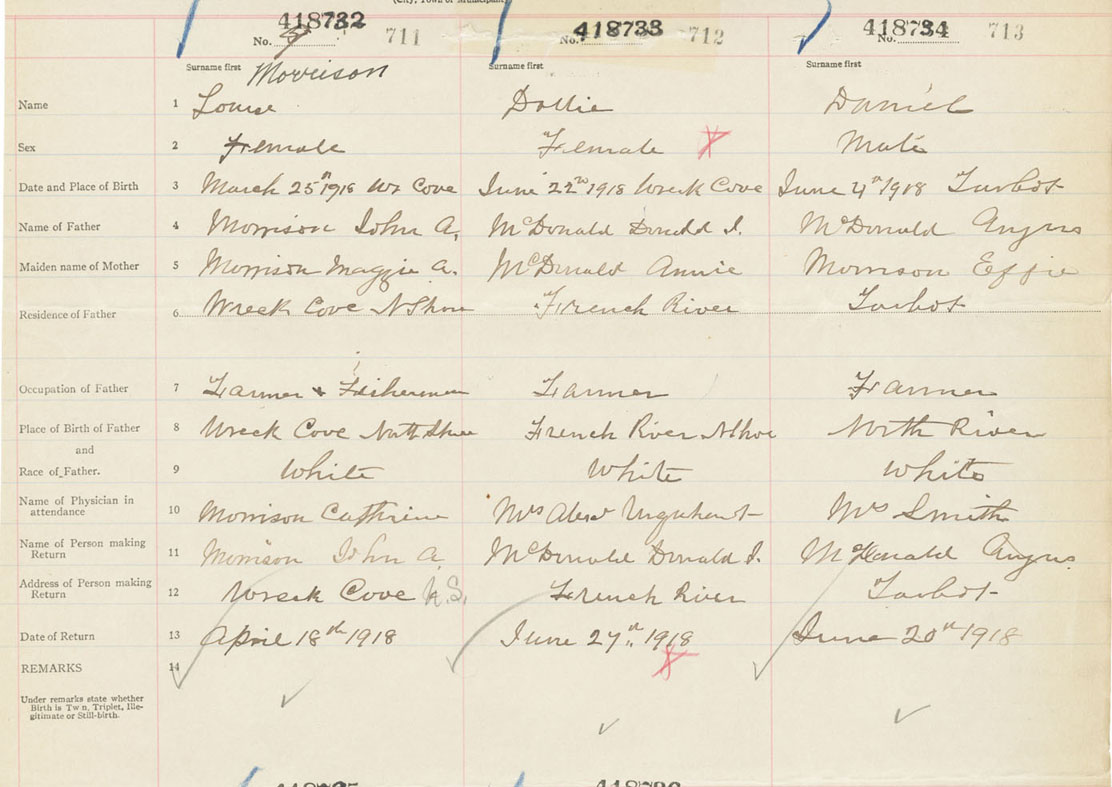 (City, Town or Municipality)
418732 418733 418734
No. 711 No. 712 No. 713
Surname first Morrison Surname first Surname first
Name 1 Louise Dollie Daniel
Sex 2 Female Female Male
Date and Place of Birth 3 March 25th 1918 Wr Cove June 22nd 1918 Wreck Cove June 4th 1918 Tarbot
Name of Father 4 Morrison John A. McDonald Donald J. McDonald Angus
Maiden name of Mother 5 Morrison Maggie A. McDonald Annie Morrison Effie
Residence of Father 6 Wreck Cove N Shore French River Tarbot
Occupation of Father 7 Farmer & Fisherman Farmer Farmer
Place of Birth of Father 8 Wreck Cove North Shore French River N Shore North River
and
Race of Father. 9 White White White
Name of Physician in
attendance 10 Morrison Cathrine Mrs Urquhart Mrs Smith
Name of Person making
Return 11 Morrison John A. McDonald Donald J. McDonald Angus
Address of Person making
Return 12 Wreck Cove N.S. French River Tarbot
Date of Return 13 April 18th 1918 June 27th 1918 June 20th 1918
REMARKS 14
Under remarks state whether
Birth is Twn, Triplet, Ille-
gitimate or Still-birth.